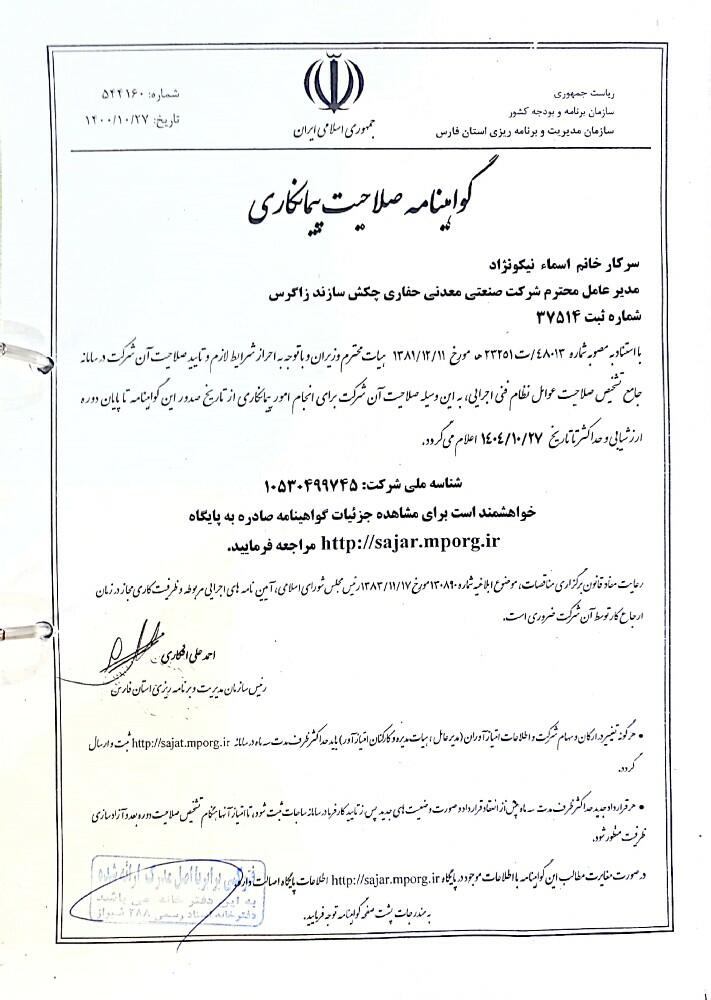 ریاست جمهوری
سازمان برنامه و بودجه کشور
سازمان مدیریت و برنامه ریزی استان فارس
جمهوری اسلامی ایران
شماره: ۵۴۴۱۶۰
تاریخ: ۱۴۰۰/۱۰/۲۷
گواهینامه صلاحیت پیمانکاری
سرکار خانم اسماء نیکونژاد
مدیر عامل محترم شرکت صنعتی معدنی حفاری چکش سازند زاگرس
شماره ثبت ۳۷۵۱۴
با استناد به مصوبه شماره ۴۸۰۱۳/ت۲۳۲۵۱ه مورخ ۱۳۸۱/۱۲/۱۱ هیات محترم وزیران و با توجه به احراز شرایط لازم و تایید صلاحیت آن شرکت در سامانه
جامع تشخیص صلاحیت عوامل نظام فنی اجرایی، به این وسیله صلاحیت آن شرکت برای انجام امور پیمانکاری از تاریخ صدور این گواهینامه تا پایان دوره
ارزشیابی و حداکثر تا تاریخ ۱۴۰۴/۱۰/۲۷ اعلام می گردد.
شناسه ملی شرکت: ۱۰۵۳۰۴۹۹۷۴۵
خواهشمند است برای مشاهده جزئیات گواهینامه صادره به پایگاه
http://sajar.mporg.ir مراجعه فرمایید.
رعایت مفاد قانون برگزاری مناقصات، موضوع ابلاغیه شماره ۱۳۰۸۹۰ مورخ ۱۳۸۳/۱۱/۱۷ رئیس مجلس شورای اسلامی، آیین نامه های اجرایی مربوطه و ظرفیت کاری مجاز در زمان
ارجاع کار توسط آن شرکت ضروری است.
احمد علی افکاری
رئیس سازمان مدیریت و برنامه ریزی استان فارس
• هرگونه تغییر در ارکان و سهام شرکت و اطلاعات امتیازآوران (مدیرعامل، هیات مدیره و کارکنان امتیازآور) باید حداکثر ظرف مدت سه ماه در سامانه http://sajat.mporg.ir ثبت و ارسال
گردد.
• هر قرارداد جدید حداکثر ظرف مدت سه ماه پس از انعقاد قرارداد و صورت وضعیت های جدید پس از تایید کارفرما در سامانه ساجات ثبت شود، تا امتیاز آنها هنگام تشخیص صلاحیت دوره بعد و آزادسازی
ظرفیت منظور شود.
در صورت مغایرت مطالب این گواهینامه با اطلاعات موجود در پایگاه http://sajar.mporg.ir اطلاعات پایگاه اصالت دارد.
به مندرجات پشت صفحه گواهینامه توجه فرمایید.
برابر با اصل مدرک ارائه شده
به این دفتر خانه می باشد
دفترخانه اسناد رسمی ۲۸۸ شیراز